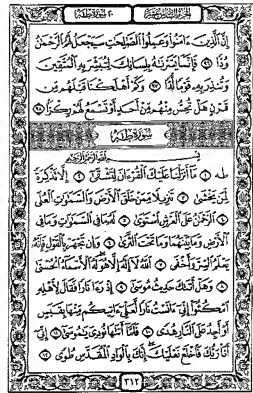 الجزء السادس عشر ٢٠ سورة طه
إن الذين ءامنوا وعملوا الصلحت سيجعل لهم الرحمن
ودا ٩٦ فإنما يسرنه بلسانك لتبشر به المتقين
وتنذر به قوما لدا ٩٧ وكم أهلكنا قبلهم من
قرن هل تحس منهم من أحد أو تسمع لهم ركزا ٩٨
سورة طه
بسم الله الرحمن الرحيم
طه ١ ما أنزلنا عليك القرءان لتشقى ٢ إلا تذكرة
لمن يخشى ٣ تنزيلا ممن خلق الأرض والسموت العلى
٤ الرحمن على العرش استوى ٥ له ما في السموت وما في
الأرض وما بينهما وما تحت الثرى ٦ وإن تجهر بالقول فإنه
يعلم السر وأخفى ٧ الله لا إله إلا هو له الأسماء الحسنى
٨ وهل أتىك حديث موسى ٩ إذ رءا نارا فقال لأهله
امكثوا إني ءانست نارا لعلي ءاتيكم منها بقبس
أو أجد على النار هدى ١٠ فلما أتىها نودي يموسى ١١ إني
أنا ربك فاخلع نعليك إنك بالواد المقدس طوى ١٢
٣١٢